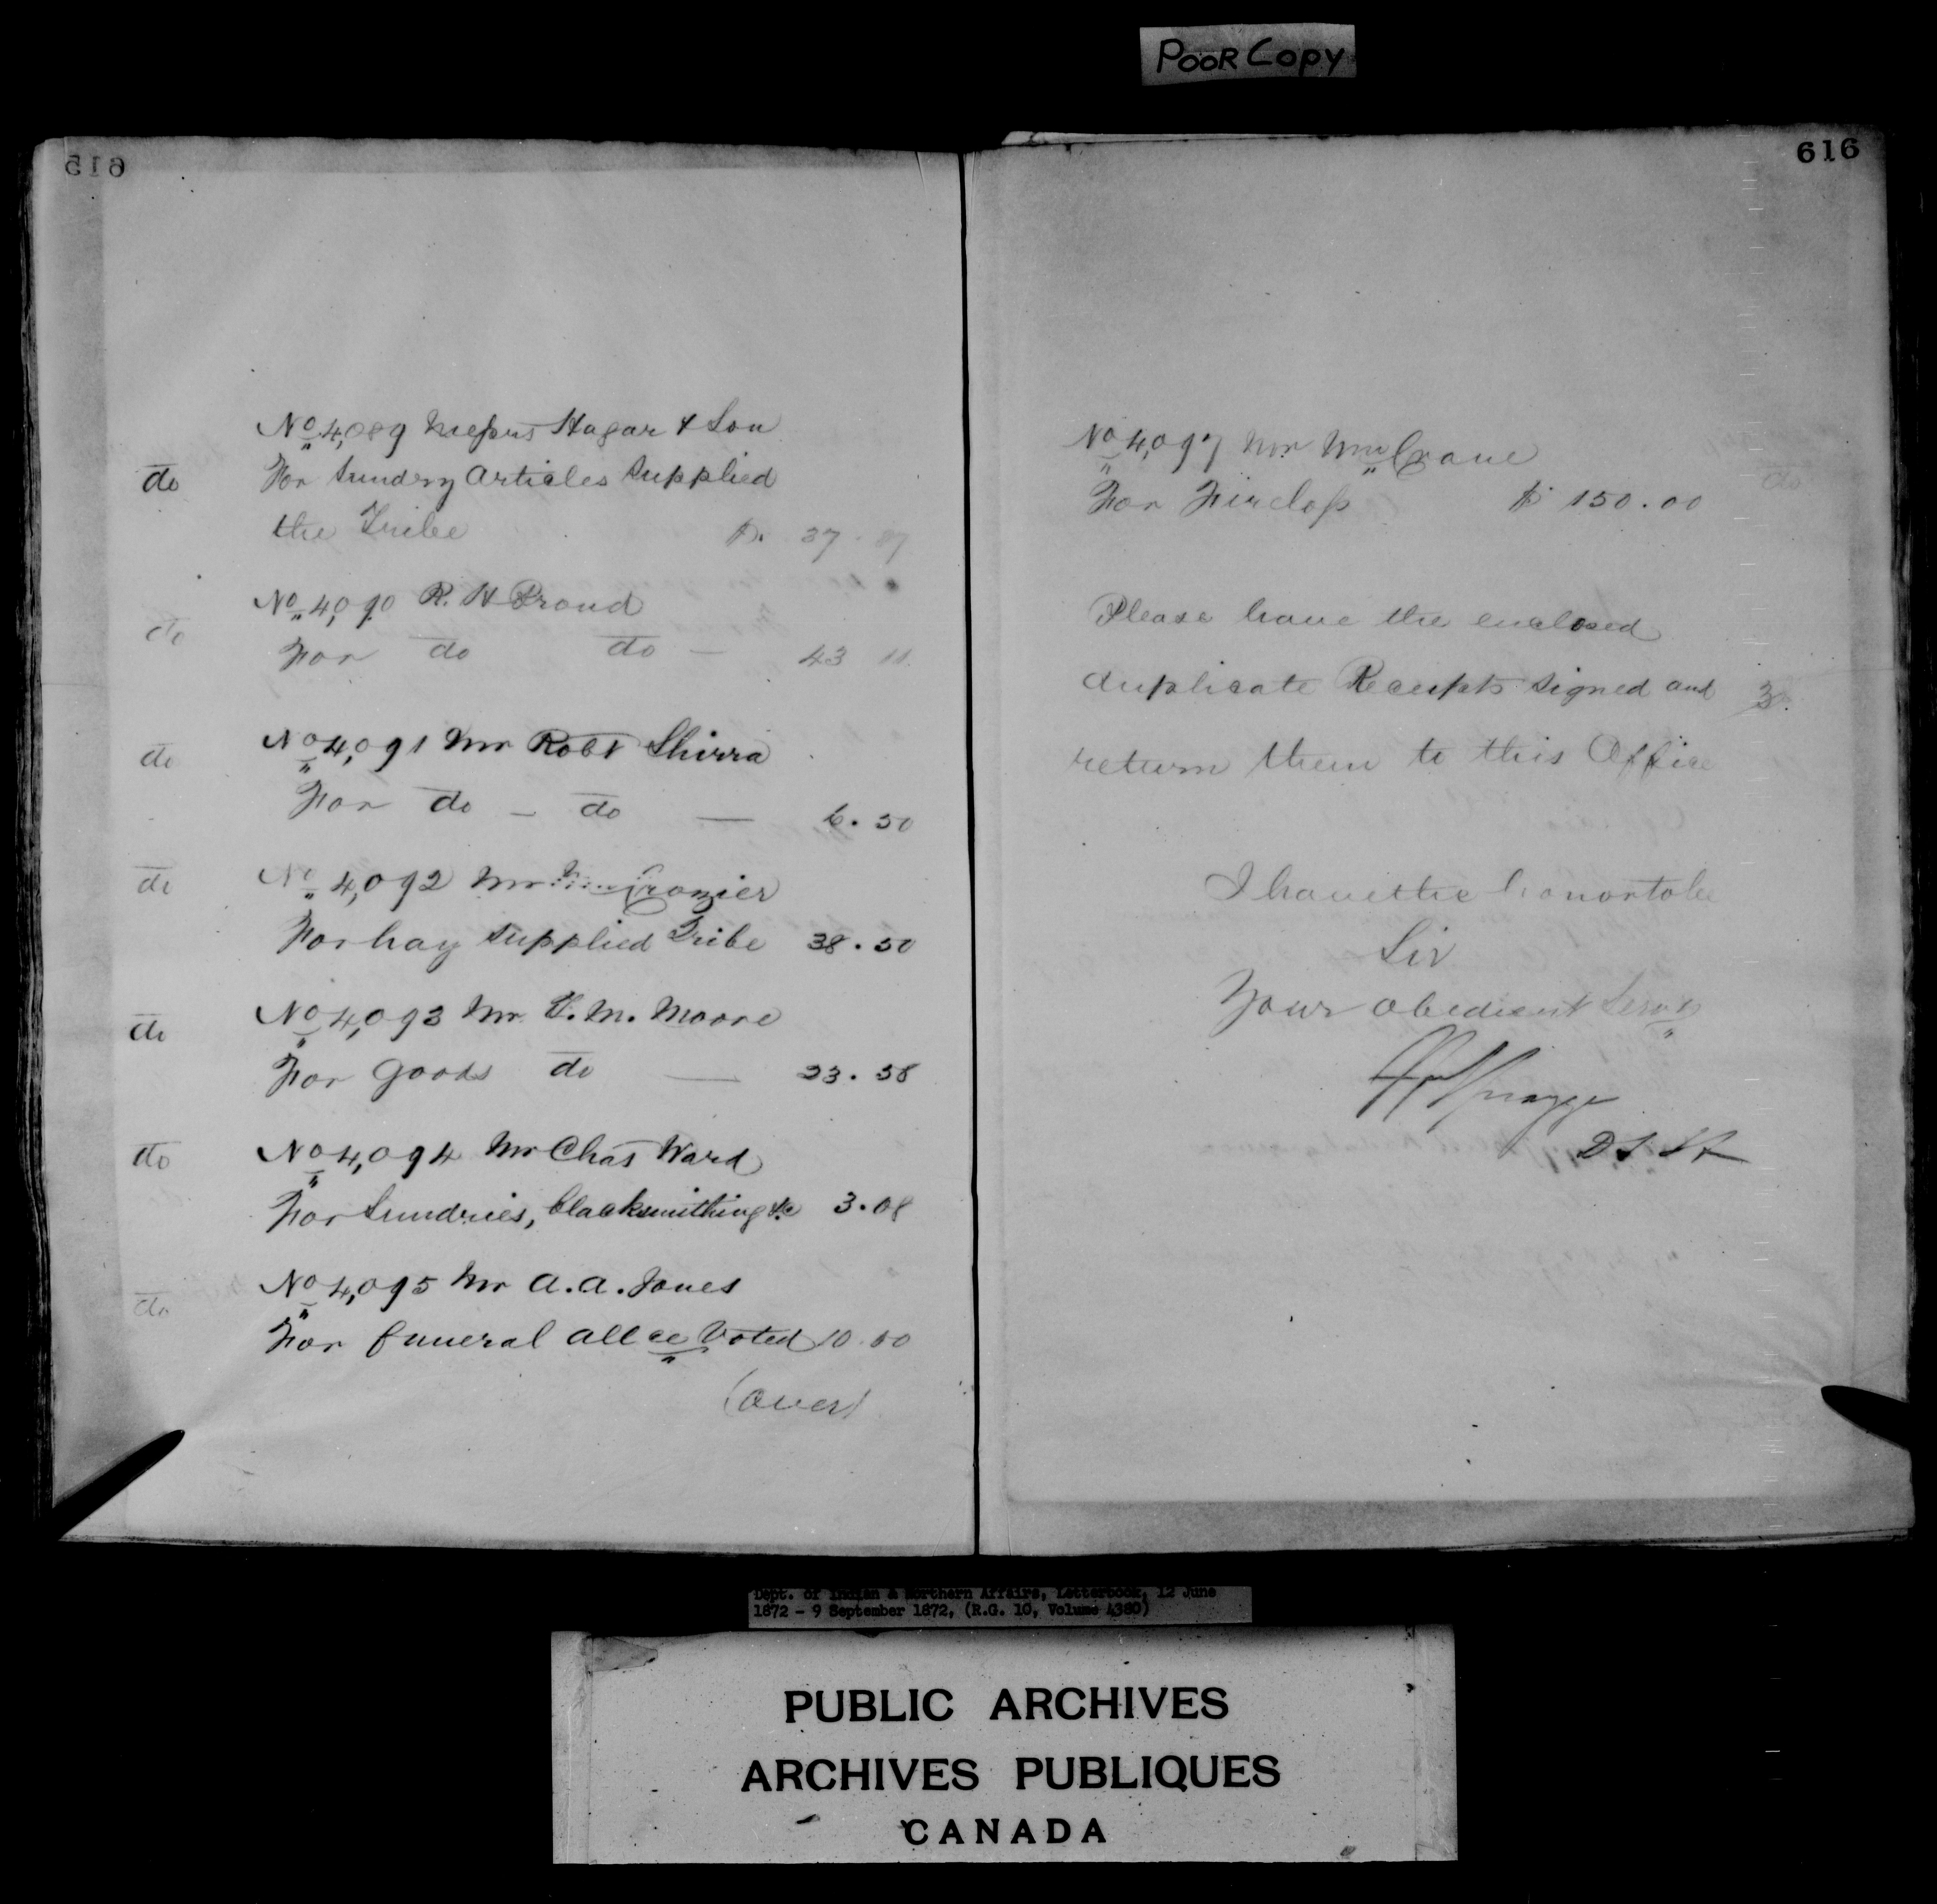 POOR COPY
615
do
No 4,089 Messrs Hagar & Son
For Sundry articles supplied
the Tribe $. 37.87
do
No 4,090 R. H Proud
For do do — 43 11
do
No 4,091 Mr Robt Shirra
For do - do — 6.50
do
No 4,092 Mr Crozier
For hay supplied Tribe 38.50
do
No 4,093 Mr M. Moore
For Goods do — 23.58
do
No 4,094 Mr Chas Ward
For Sundries, blacksmithing &c 3.08
do
No 4,095 Mr A. A. Jones
For funeral allce Voted 10.00
(over)
616
No 4,097 Mr Wm Crane
For $ 150.00
Please have the enclosed
duplicate Receipts signed and
return them to this Office
I have the honor to be
Sir
Your obedient Servt
Spragge
D S I A
Dept. of Indian & Northern Affairs, Letterbook, 12 June
1872 - 9 September 1872, (R.G. 10, Volume 4380)
PUBLIC ARCHIVES
ARCHIVES PUBLIQUES
CANADA